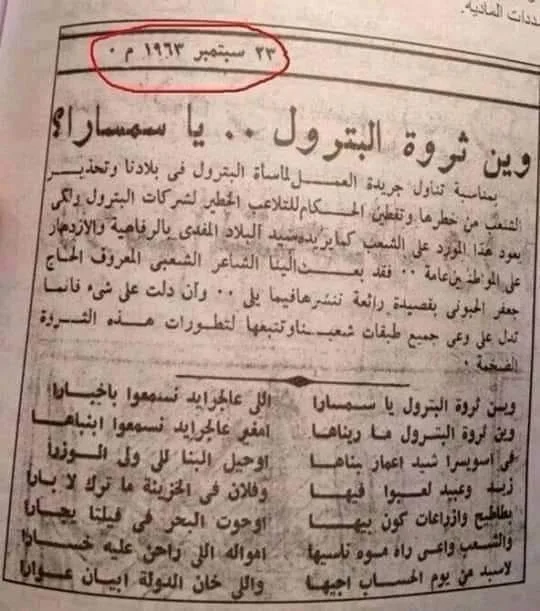 ددات الماديه.
٢٣ سبتمبر ١٩٦٣ م ٠
وين ثروة البترول ٠٠ يا سمسارا؟
بمناسبة تناول جريدة العمل لمأساة البترول فى بلادنا وتحذير
الشعب من خطرها وتفطين الحكام للتلاعب الخطير لشركات البترول ولكى
يعود هذا المورد على الشعب كما يريده سيد البلاد المفدى بالرفاهية والازدهار
على المواطنين عامة ٠٠ فقد بعث الينا الشاعر الشعبى المعروف الحاج
جعفر الحبونى بقصيدة رائعة ننشرها فيما يلى ٠٠ وأن دلت على شىء فانما
تدل على وعى جميع طبقات شعبنا وتتبعها لتطورات هذه الثروة
الضخمة ٠
وين ثروة البترول يا سمسارا اللى عالجرايد نسمعوا باخبارا
وين ثروة البترول ما ريناها امغير عالجرايد نسمعوا ابنباها
فى اسويسرا شيد اعمار بناها اوحيل البنا للى ولى الوزرا
زيد وعبيد لعبوا فيها وفلان فى الخزينة ما ترك لا بارا
بطاطيح وازراعات كون بيها اوحوت البحر فى فيلتا يجارا
والشعب واعى راه موه ناسيها امواله اللى راحن عليه خسارا
لاسبد من يوم الحساب اجيها واللى خان الدولة ابيان عوارا